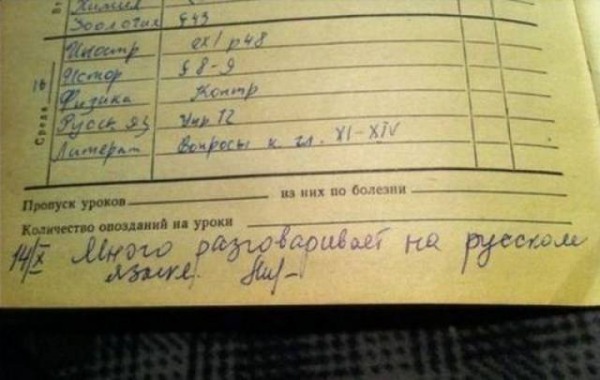 Химия
Зоология §43
Среда 16
Иностр ex1 p48
Истор § 8-9
Физика Контр
Русск яз Упр. 72
Литерат Вопросы к гл. XI-XIV
Пропуск уроков из них по болезни
Количество опозданий на уроки
14/X Много разговаривает на русском
языке.